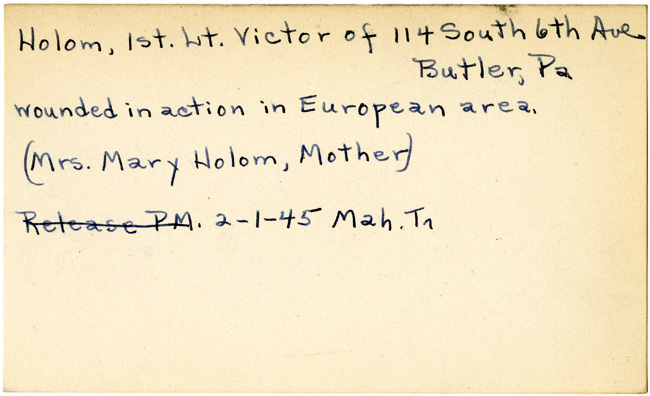 Holom, 1st. Lt. Victor of 114 South 6th Ave
Butler, Pa
wounded in action in European area.
(Mrs. Mary Holom, Mother)
Release PM. 2-1-45 Mah. Tr